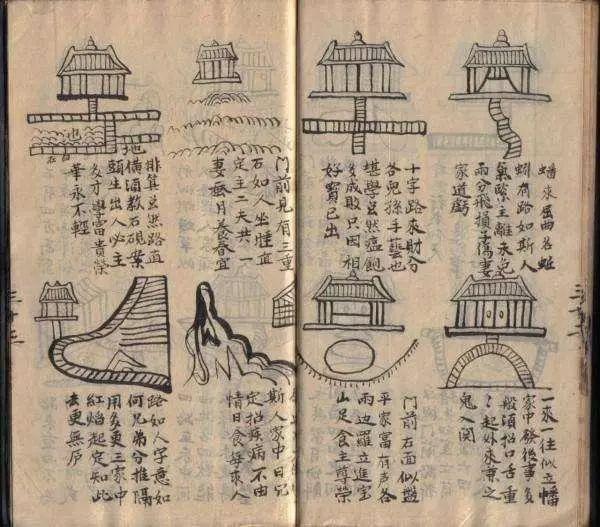 蟠來屈曲名蚯
蚓有路如斯人
氣除主離未免
兩分飛損子傷妻
家道虧
十字路來財分
各兒孫手藝也
堪學雖然溫飽
多成敗只因相
好寶已出
門前見有三重
石如人坐睡宜
定主二夫共一
妻無月養春宜
排算雖然路直
橫酒教石硯案
頭生出人必主
多才學富貴榮
華永不輕
一來一往似立幡
家中發後事多
般須招口舌重
重起外來兼之
鬼入関
門前石面似盤
平家富有聲各
兩边羅立進宝
山足食主尊榮
斯人家中日記
定招疾病不由
情日食每求人
路如人字意如
何兄弟分推隔
用多更三家中
紅焰起定知此
去更無戶
三十二